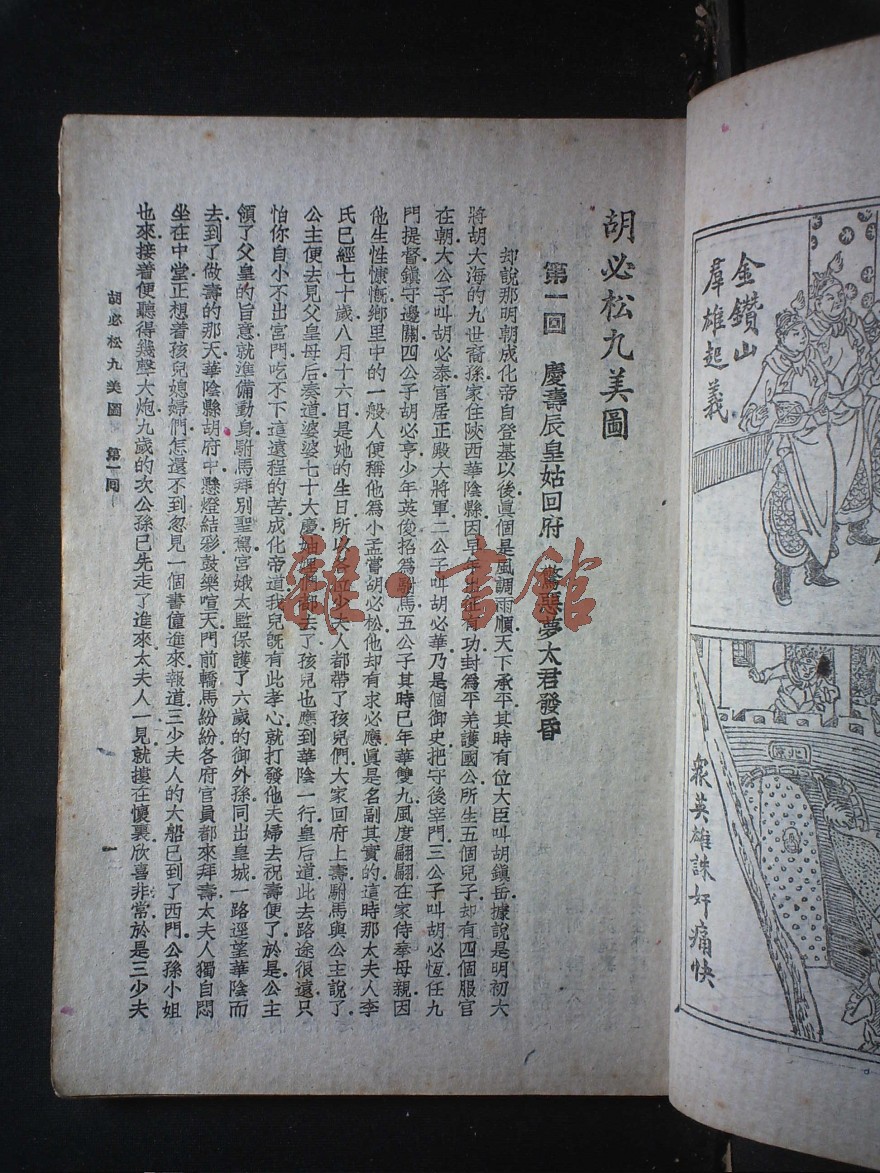 金鑽山
羣雄起義
北京
衆英雄誅奸痛快
胡必松九美圖
第一回　慶壽辰皇姑回府　驚惡夢太君發昏
却說那明朝成化帝自登基以後眞個是風調雨順天下承平其時有位大臣叫胡鎭岳據說是明初六
將胡大海的九世裔孫家住陝西華陰縣因早年出征有功封爲平羌護國公所生五個兒子却有四個服官
在朝大公子叫胡必泰官居正殿大將軍二公子叫胡必華乃是個御史把守後宰門三公子叫胡必恆任九
門提督鎭守邊關四公子胡必亨少年英俊招爲駙馬五公子其時已年華雙九風度翩翩在家侍奉母親因
他生性慷慨鄉里中的一般人便稱他爲小孟嘗胡必松他却有求必應眞是名副其實的這時那太夫人李
氏已經七十歲八月十六日是她的生日所以各位少夫人都帶了孩兒們大家回府上壽駙馬與公主說了
公主便去見父皇母后湊道婆婆七十大慶妯娌們都去了孩兒也應到華陰一行皇后道此去路途很遠只
怕你自小不出宮門吃不下這遠程的苦成化帝道我兒旣有此孝心就打發他夫婦去祝壽便了於是公主
領了父皇的旨意就準備動身駙馬拜別聖駕宮娥太監保護了六歲的御外孫同出皇城一路逕望華陰而
去到了做壽的那天華陰縣胡府中懸燈結彩鼓樂喧天門前轎馬紛紛各府官員都來拜壽太夫人獨自悶
坐在中堂正想着孩兒媳婦們怎還不到忽見一個書僮進來報道三少夫人的大船已到了西門公孫小姐
也來接着便聽得幾聲大炮九歲的次公孫已先走了進來太夫人一見就摟在懷裏欣喜非常於是三少夫
胡必松九美圖　第一回
一
雜·書館